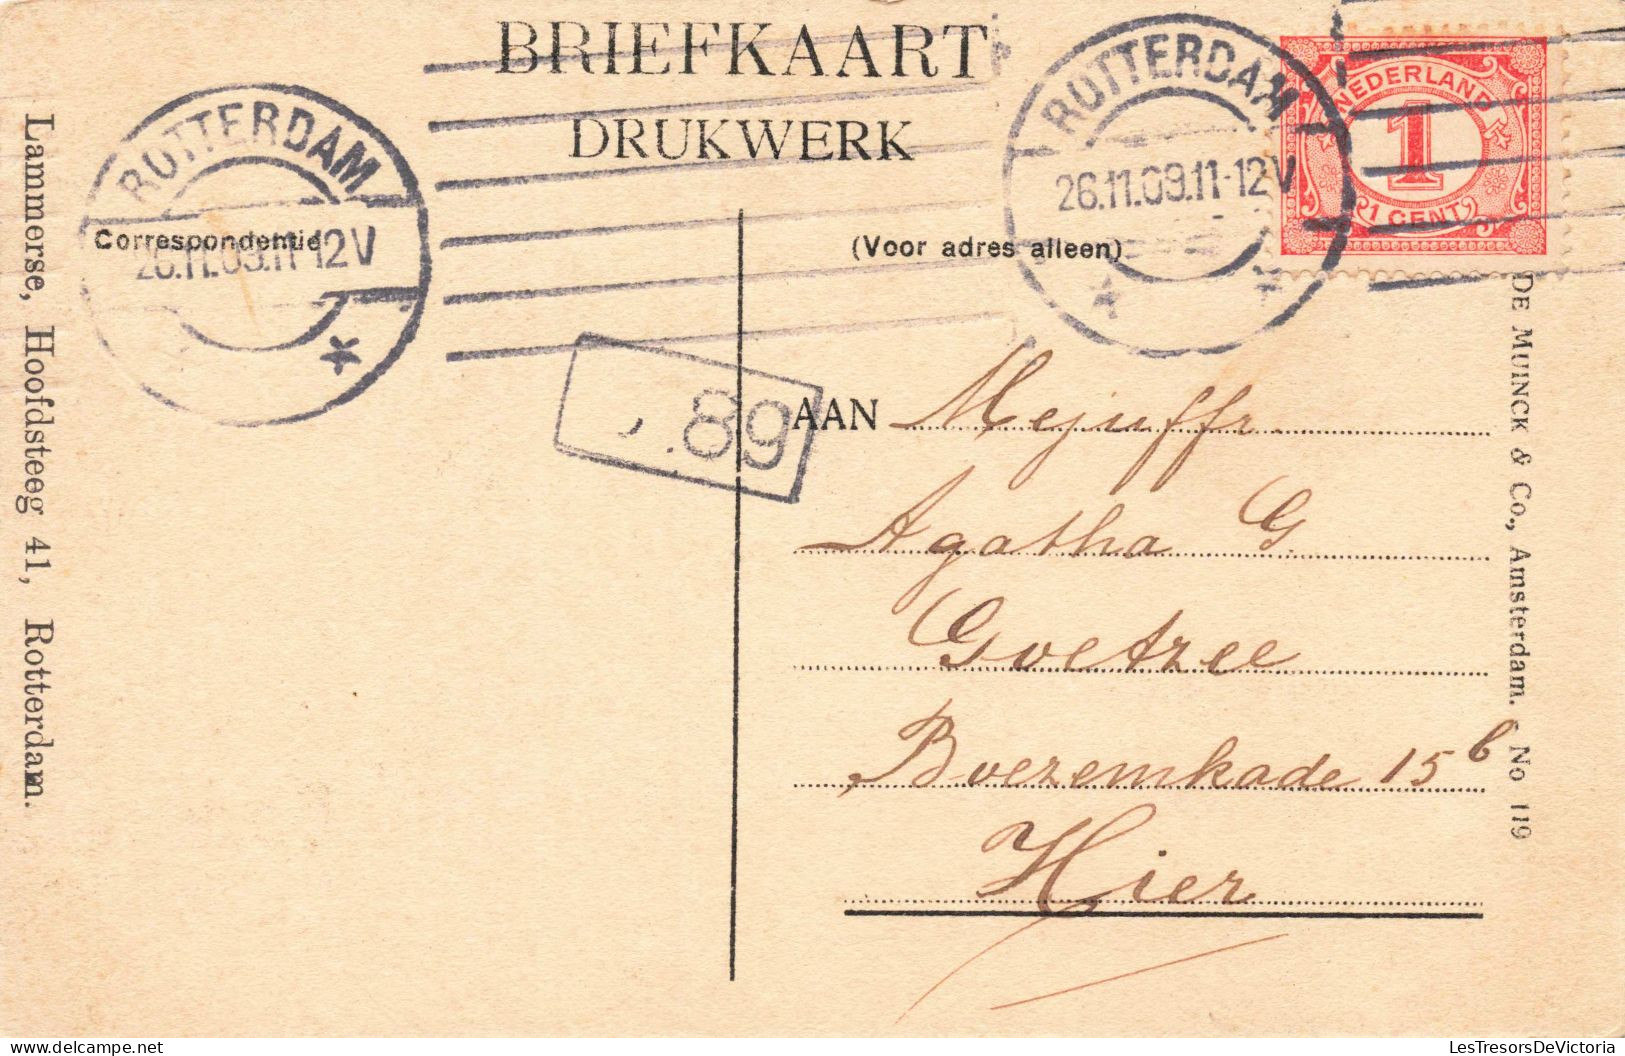 BRIEFKAART
DRUKWERK
ROTTERDAM
26.11.09.11-12V
Correspondentie
ROTTERDAM
26.11.09.11-12V
NEDERLAND
1
1 CENT
(Voor adres alleen)
89
AAN Mejuffr.
Agatha G
Goetzee
Boezemkade 15b
Hier
Lammerse, Hoofdsteeg 41, Rotterdam.
DE MUINCK & Co., Amsterdam. No 119
LesTresorsDeVictoria